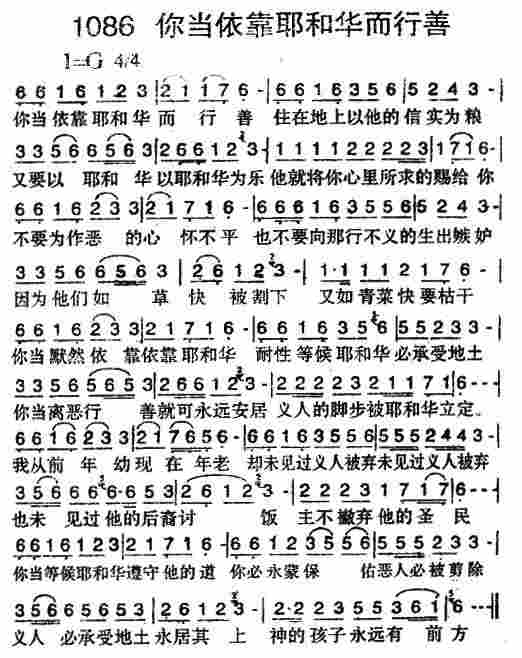 1086 你当依靠耶和华而行善
1=G 4/4
6 6 1 6 1 2 3 | 2 1 1 7 6 - | 6 6 1 6 3 5 6 | 5 2 4 3 - |
你当依靠耶和华而行善 住在地上以他的信实为粮
3 3 5 6 6 5 6 3 | 2 6 6 1 2 3 - | 1 1 1 1 2 2 2 2 3 | 1 7 1 6 - |
又要以耶和华以耶和华为乐他就将你心里所求的赐给你
6 6 1 6 2 3 3 | 2 1 7 1 6 - | 6 6 6 1 6 3 5 5 6 | 5 2 4 3 - |
不要为作恶的心怀不平也不要向那行不义的生出嫉妒
3 3 5 6 6 5 6 3 | 2 6 1 2 3 - | 1 · 1 1 1 2 2 1 7 6 - |
因为他们如草快被割下 又如青菜快要枯干
6 6 1 6 2 3 3 | 2 1 7 1 6 - | 6 6 1 6 3 5 6 | 5 5 2 3 3 - |
你当默然依靠依靠耶和华 耐性等候耶和华必承受地土
3 3 5 6 5 6 5 3 | 2 6 6 1 2 3 - | 2 2 2 2 3 2 1 1 7 1 | 6 - - - |
你当离恶行善就可永远安居义人的脚步被耶和华立定。
6 6 1 6 2 3 3 | 2 1 7 6 5 6 - | 6 6 1 6 3 5 5 6 | 5 5 5 2 4 4 3 - |
我从前年幼现在年老却未见过义人被弃未见过义人被弃
3 5 6 6 6 6 · 6 5 3 | 2 6 1 2 3 - | 2 2 2 2 3 1 7 1 7 | 6 - - - |
也未见过他的后裔讨饭 主不撇弃他的圣民
6 6 1 6 1 2 3 | 2 1 7 1 6 - | 6 6 1 2 3 5 5 6 | 5 5 2 3 3 - |
你当等候耶和华遵守他的道 你必永蒙保佑恶人必被剪除
3 5 6 6 5 6 5 3 | 2 6 1 2 3 - | 2 · 2 2 2 3 5 5 3 6 1 | 6 - - ‖
义人必承受地土永居其上 神的孩子永远有前方